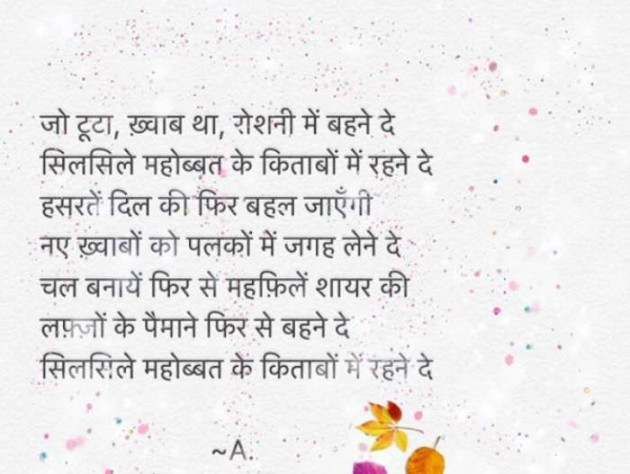 जो टूटा, ख़्वाब था, रोशनी में बहने दे
सिलसिले महोब्बत के किताबों में रहने दे
हसरतें दिल की फिर बहल जाएँगी
नए ख़्वाबों को पलकों में जगह लेने दे
चल बनायें फिर से महफ़िलें शायर की
लफ़्ज़ों के पैमाने फिर से बहने दे
सिलसिले महोब्बत के किताबों में रहने दे
~A.